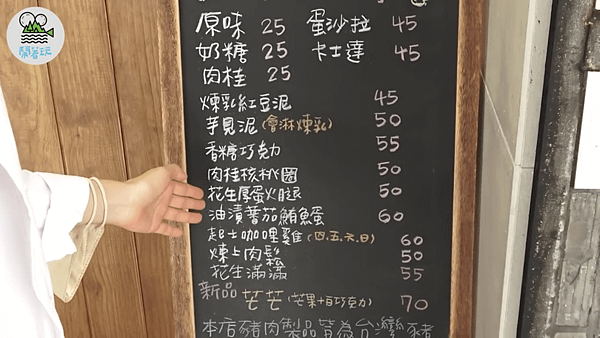 鬧著玩
原味 25 蛋沙拉 45
奶糖 25 卡士達 45
肉桂 25
煉乳紅豆泥 45
芋見泥(會淋煉乳) 50
香糖巧克力 55
肉桂核桃園 50
花生厚蛋火腿 50
油漬蕃茄鮪魚蛋 60
起士咖哩雞(四.五.六.日) 60
煉上肉鬆 50
花生滿滿 55
新品 芒芒(芒果+白巧克力) 70
本店豬肉製品皆為台灣豬